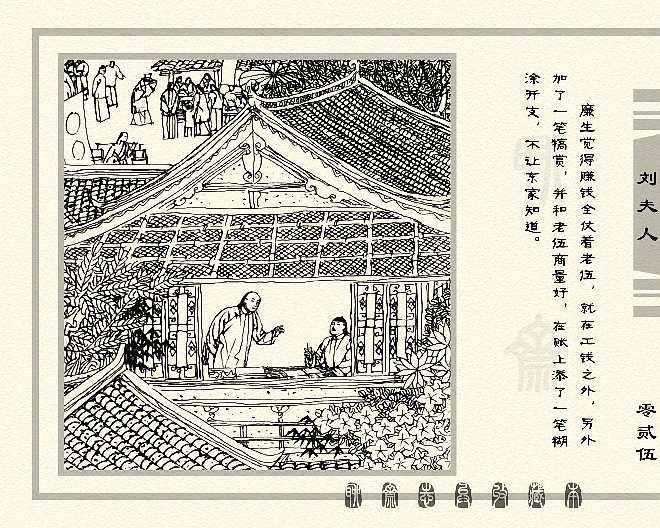 廉生觉得赚钱全仗着老伍，就在工钱之外，另外
加了一笔犒赏，并和老伍商量好，在账上添了一笔糊
涂开支，不让东家知道。
刘夫人
零贰伍
聊斋志异收藏本